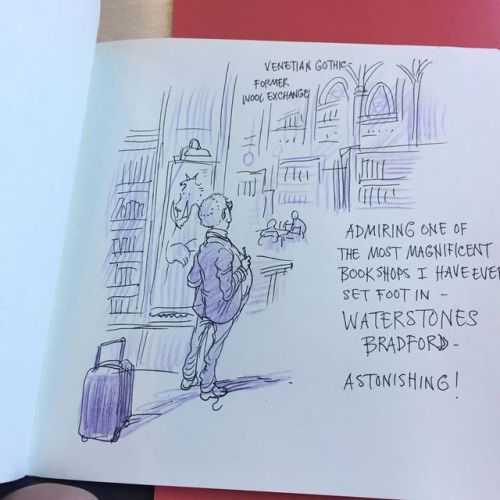 VENETIAN GOTHIC-
FORMER
WOOL EXCHANGE
ADMIRING ONE OF
THE MOST MAGNIFICENT
BOOKSHOPS I HAVE EVER
SET FOOT IN -
WATERSTONES
BRADFORD-
ASTONISHING!